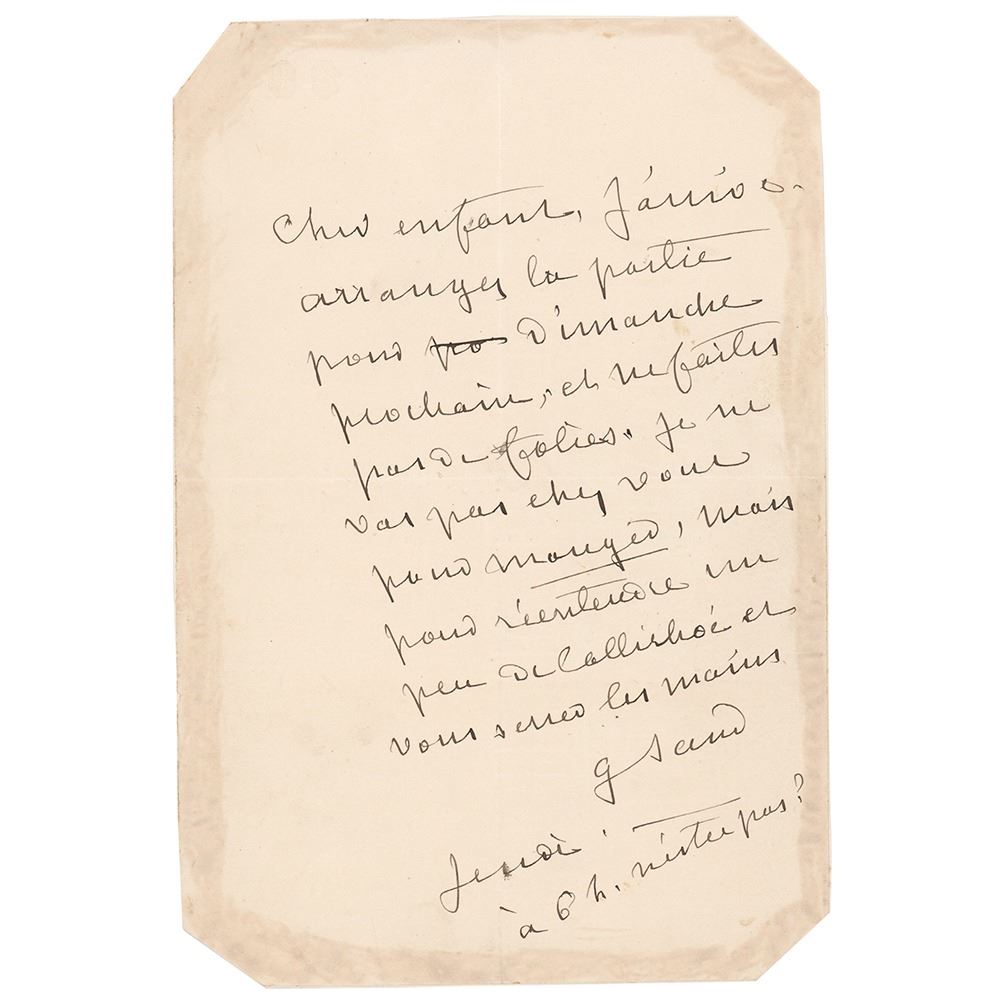 Cher enfant, J'arrive.
arrangez la partie
pour po Dimanche
prochain, et ne faites
pas de folies. Je ne
vas pas chez vous
pour manger, mais
pour réentendre un
peu de Callirhoé et
vous serrer les mains
g Sand
Jeudi
à 6 h. n'est ce pas?